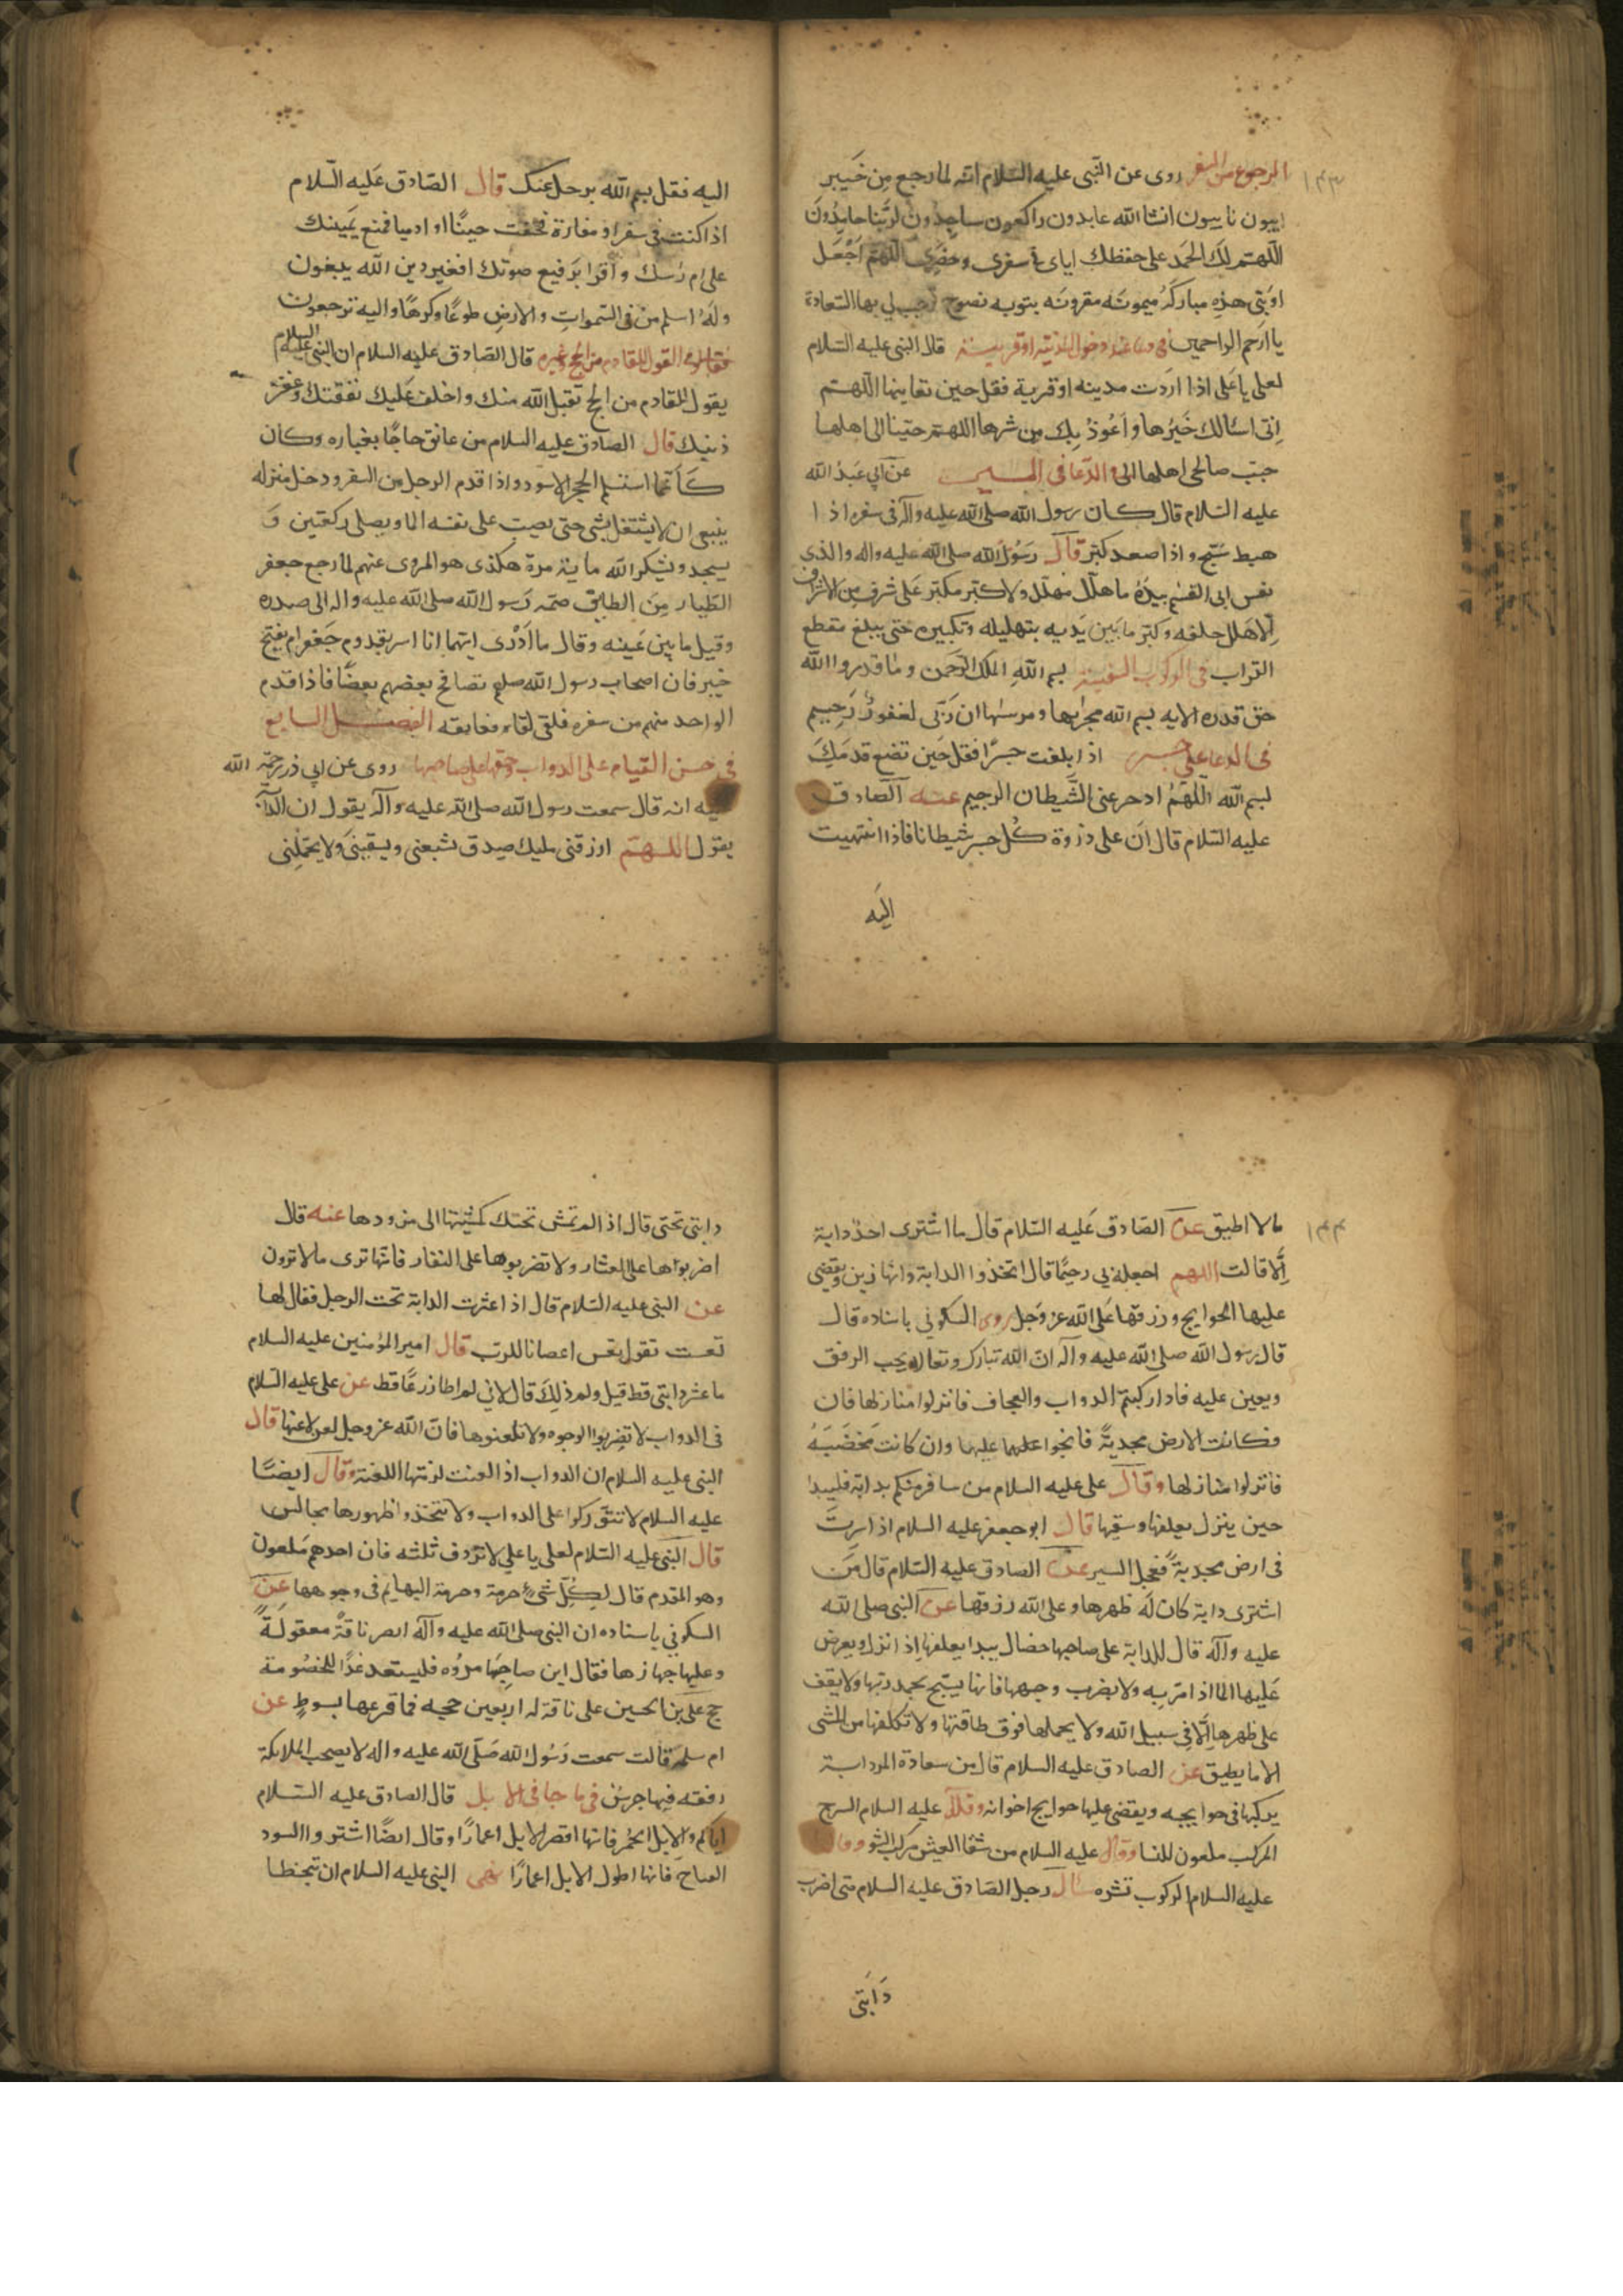 ١٤٣
الرجوع من السفر روى عن النّبى عليه السّلام انّه لما رجع مِن خَيبر
ايبون تايبون انشا الله عابدون راكعون ساجِدُونَ لربّنا حامِدُونَ
اللّهتم لَكَ الحَمد على حفظك اياى فى سفرى وحضَرِى اللّهمّ اجْعَل
اوبَتى هذِه مبارَكَةً ميمونَه مقرونَه بتوبه نصوح توجب لي بها السّعادة
يا ارحم الراحمين فى دعا عند دخول المدينة او قريــة قال النبى عليه السّلام
لعلى يا عَلى اذا ارَدت مدينه او قرية فقل حين تعاينها اللّهـتم
اِنّى اسئالك خَيرُها وَاعُوذُ بِك مِن شرها اللهتم حببنا الى اهلها
حبّب صالحى اهلها الى فى الدّعا فى المسير عن ابي عَبدُ الله
عليه السّلام قال كان رسول الله صلى الله عليه وآله فى سفره اذا
هبط سَبّح واذا صعد كبّر قال رَسُولُ الله صلى الله عليه واله والذى
نفس ابى القسم بيَدِهُ ما هَلّل مهلّل ولا كبّر مكبّر عَلى شرفٍ من الاشراف
اِلّا هَلّل خلفه وكبّر ما بَين يَديه بتهليله وتكبيره حتّى يبلغ مقطع
التراب فى الركوب السفينة بسم اللّهِ الملك الرّحَمن وما قدروا الله
حق قدره الايه بسم الله مجراها ومرساها ان رَبّى لغفورٌ رَحِيم
فى الدعا على جسر اذا بلغت جسرًا فقل حَين تضع قدمَك
بسم الله اللّهمّ ادحر عنى الشّيطان الرجيم عنـه الصّادق
عليه السّلام قال اَن على ذروة كُلّ جسر شيطانا فاذا انتهيت
اليَه
اليه فقل بسم اللّه يرحل عنك قال الصّادق عَليه السّلام
اذا كنت فى سفر او مفازة فخفت جينًا او ادميا فضع يَمينك
على ام رُسك واقرا برَفيع صوتك افغير دين الله يبغون
وله اسلم من فى السّموات والارضِ طوعًا وكرهًا واليه ترجعون
فى القول للقادم من الحج وغيره قال الصّادق عليه السلام ان النبى عليه السلام
يقول للقادم من الحج تقبل الله منك واخلف عَليك نفقتك وغفر
ذنبك قال الصادق عليه السلام من عانق حاجًا بغباره وكان
كأنّما استلم الحجر الاسود واذا قدم الرجل من السفر ودخل منزله
ينبغى ان لا يشتغل بشى حتى يصيب على نفسه الما ويصلى ركعتين وَ
يسجد ويشكر الله ماية مرة هكذى هو المروى عنهم لما رجع جعفر
الطيار مِن الحبش ضمّه رَسول الله صلى الله عليه واله الى صدره
وقبل ما بين عَينه وقال ما اَدْرى ايّهما انا اسر بقدوم جَعفر ام بفتح
خيبر فان اصحاب رسول الله صلعم تصافح بعضهم بعضًا فاذا قدم
الواحد منهم من سفره فلقى لقاء ومعانقه الفصــل السابع
فى حسن القيام على الدواب وحقها على صاحبها روى عن ابي ذر رحمة الله
عليه انه قال سمعت رسول الله صلى الله عليه وآله يقول ان الدابّة
يقول اللـهـم ارزقنى مليك صدق يشبعنى ويسقينى ولا يحملنى
١٤٤
ما لا اطيق عن الصّادق عَليه السّلام قال ما اشترى احدٌ دابة
اِلّا قالت اللهم اجعله بي رحيمًا قال اتخذوا الدابة فانها زين ويقضى
عليها الحوايج ورزقها عَلى الله عزوَجل روى السكونى باسناده قال
قال رسول الله صلى الله عليه وآله انّ الله تبارك وتعالى يحب الرفق
ويعين عليه فاذا ركبتم الدواب والعجاف فانزلوا منازلها فان
فكانت الارض مجدبة فانجوا عليها عليها وان كانت مخضَبَةُ
فانزلوا منازلها وقال على عليه السلام من سافر منكم بدابة فليبدا
حين ينزل بعلفها وسقيها قال ابو جعفر عليه السلام اذا سِرت
فى ارض مجدبة فعجل السير عن الصادق عليه السّلام قال مَن
اشترى دابة كان لَه ظهرها وعلى الله رزقها عن النبى صلى الله
عليه وآله قال للدابة على صاحبها خصال يبدا بعلفها اِذ انزل ويعرض
عَليها الما اذا مرّ به ولا يضرب وجهها فانها يسبّح بحمد ربّها ولا يقف
على ظهرها اِلّا فى سبيل الله ولا يحملها فوق طاقتها ولا تكلفها من المشى
الا ما يطيق عن الصادق عليه السلام قال من سعادة المرء دابة
يركبها فى حوايجه ويقضى عليها حوايج اخوانه وقال عليه السلام السرج
المركب ملعون للنسا وقال عليه السلام من شقا العيش مركب السّو وقال
عليه السلام الركوب نشره سال رجل الصّادق عليه السلام متى اضرب
دَابّتى
دابتى تحتى قال اذا لم تمش تحتك كمشيتها الى مزودها عنه قال
اضربوها على العثار ولا تضربوها على النفار فانّها ترى ما لا ترون
عن النبى عليه السّلام قال اذا عثرت الدابة تحت الرجل فقال لها
تعست تقول تعس اعصانا للرب قال امير المؤمنين عليه السلام
ما عثر دابتى قط قيل ولم ذلِكَ قال لاني لم اطا زرعًا قط عن على عليه السّلام
فى الدواب لا تضربوا الوجوه ولا تلعنوها فانّ الله عزوجل لعن لاعنها قال
النبى عليه السلام ان الدواب اذا لعنت لزمتها اللعنة وقال ايضًا
عليه السلام لا تتورّكوا على الدواب ولا تتخذوا ظهورها مجالس
قال النّبى عليه السّلام لعلى يا علي لا تردف ثلثه فان احدهم مَلعون
وهو المقدم قال لِكُلِّ شىٍ حرمة وحرمة البهايم فى وجوهها عن
السكوني باسناده ان النبى صلى الله عليه وآله ابصر ناقةً معقولةً
وعليها جهازها فقال اين صاحِبُها مرُوه فليستعد غدًا للخصُومة
حج عَلى بن الحسين على ناقة له اربعين حجه فما قرعها بسوطٍ عن
ام سلمه قالت سمعت رَسُول الله صَلّى الله عليه واله لا يصحب الملايكة
رفقه فيها جرسٌ فى ما جا فى الابل قال الصادق عليه السّلام
اياكم والابل الحُمر فانها اقصر الابل اعمارًا وقال ايضًا اشتروا السود
القباحَ فانها اطول الابل اعمارًا نهى النبى عليه السلام ان تتخطا